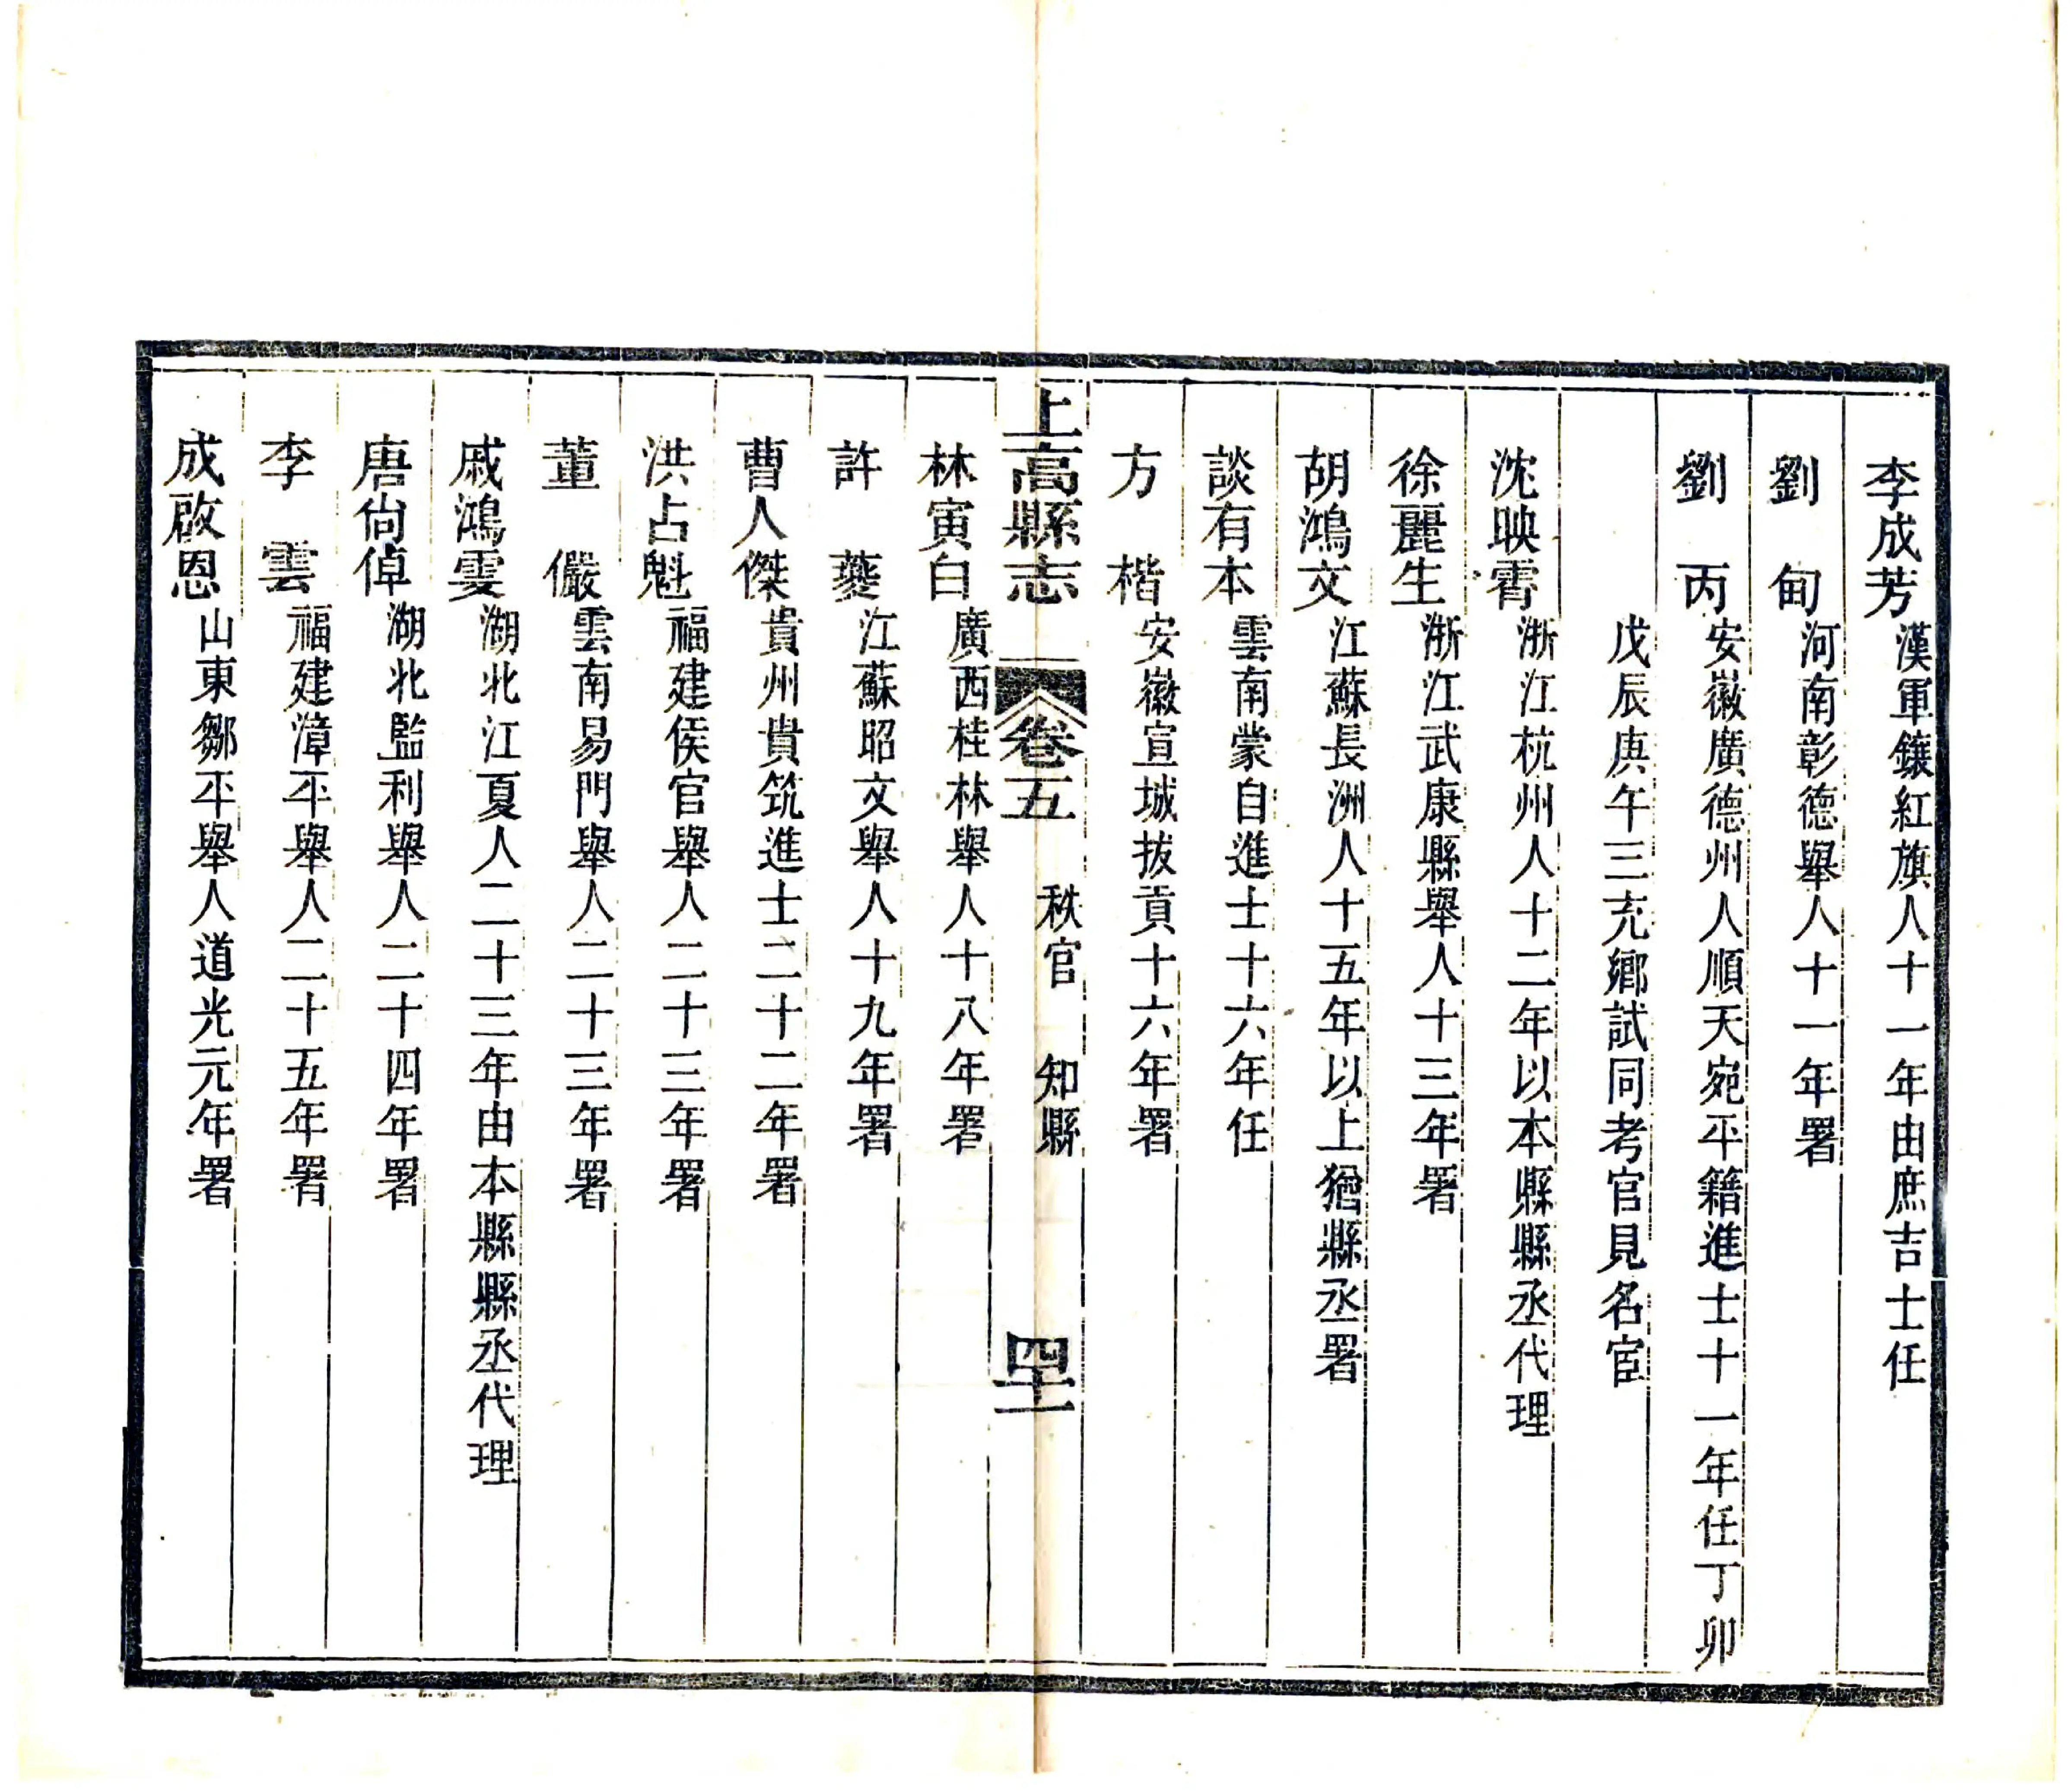 李成芳漢軍鑲紅旗人十一年由庶吉士任
劉　甸河南彰德舉人十一年署
劉　丙安徽廣德州人順天宛平籍進士十一年任丁卯
戊辰庚午三充鄉試同考官見名宦
沈映霄浙江杭州人十二年以本縣縣丞代理
徐麗生浙江武康縣舉人十三年署
胡鴻文江蘇長洲人十五年以上猶縣丞署
談有本雲南蒙自進士十六年任
方　楷安徽宣城拔貢十六年署
上高縣志　卷五　秩官　知縣　四十一
林寅白廣西桂林舉人十八年署
許　夔江蘇昭文舉人十九年署
曹人傑貴州貴筑進士二十二年署
洪占魁福建侯官舉人二十三年署
董　儼雲南易門舉人二十三年署
戚鴻雯湖北江夏人二十三年由本縣縣丞代理
唐尙倬湖北監利舉人二十四年署
李　雲福建漳平舉人二十五年署
成啟恩山東鄒平舉人道光元年署